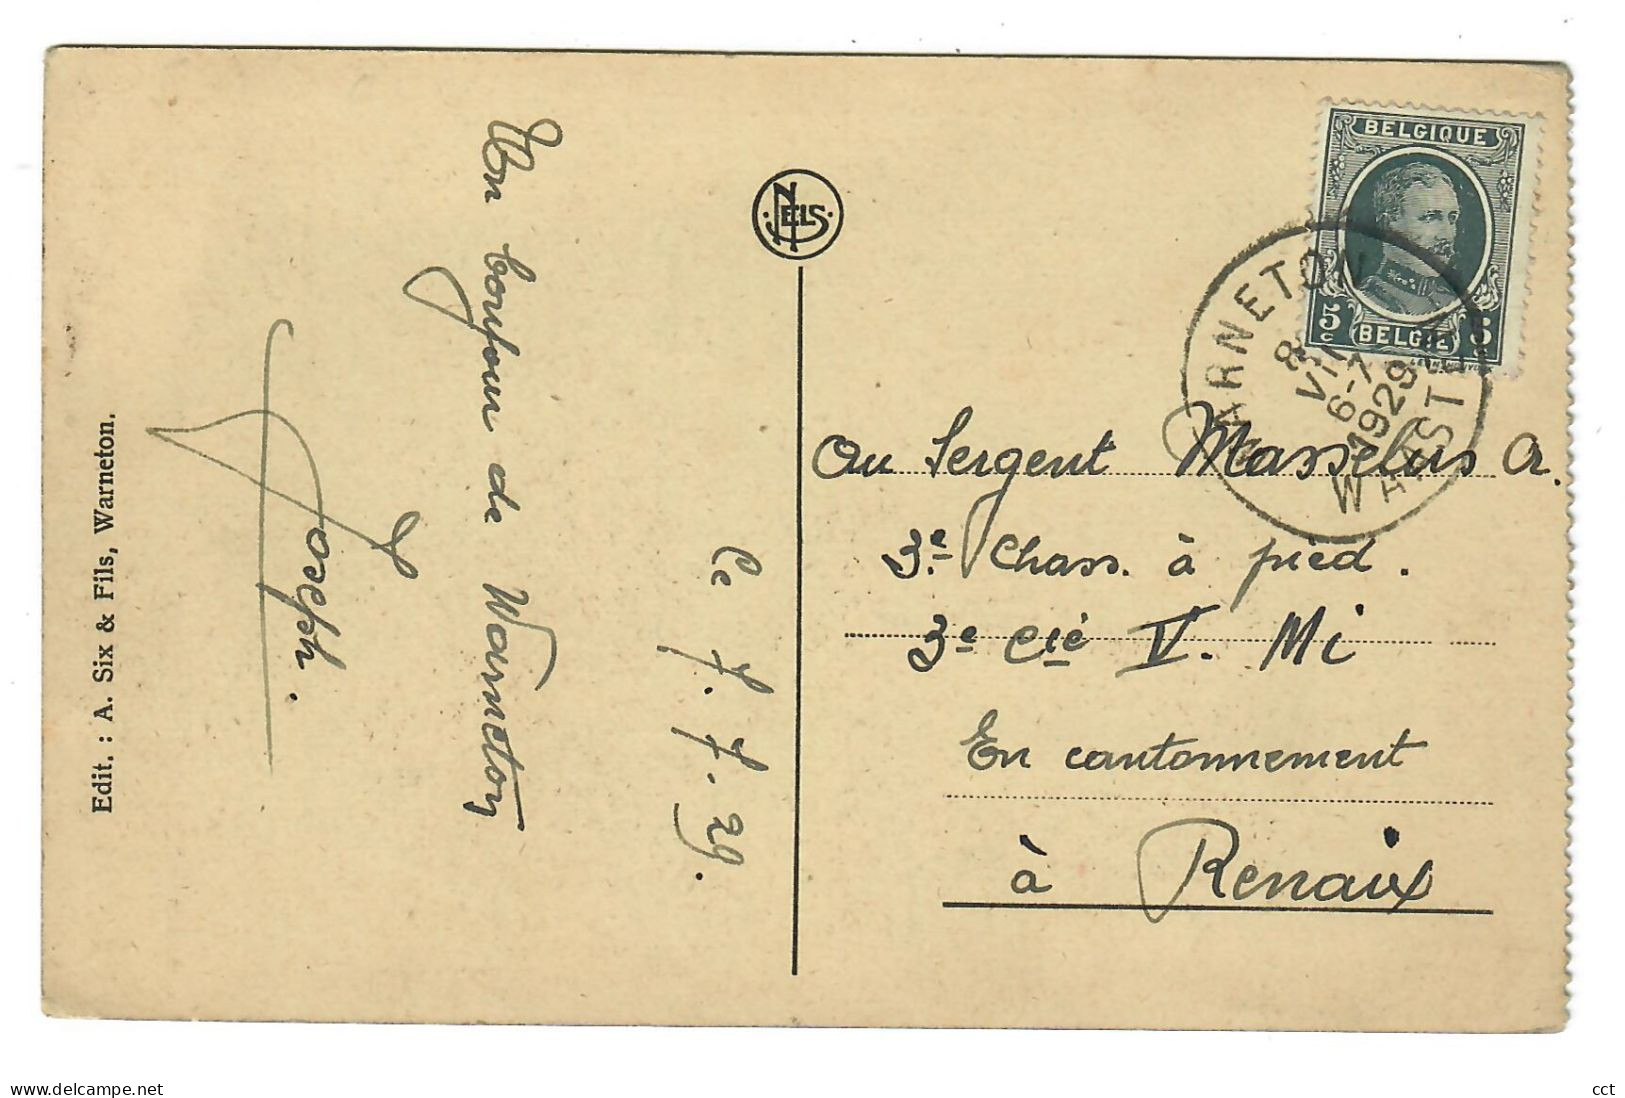 Un bonjour de Warneton
Joseph.
le 7.7.29.
Edit. : A. Six & Fils, Warneton.
NELS
BELGIQUE
5c
BELGIË
5
WARNETON
8
VII
6-7
1929
WAASTEN
Au Sergent Masselus A.
3e Chass. à pied.
3e Cie V. Mi
En cantonnement
à Renaix
www.delcampe.net
cct